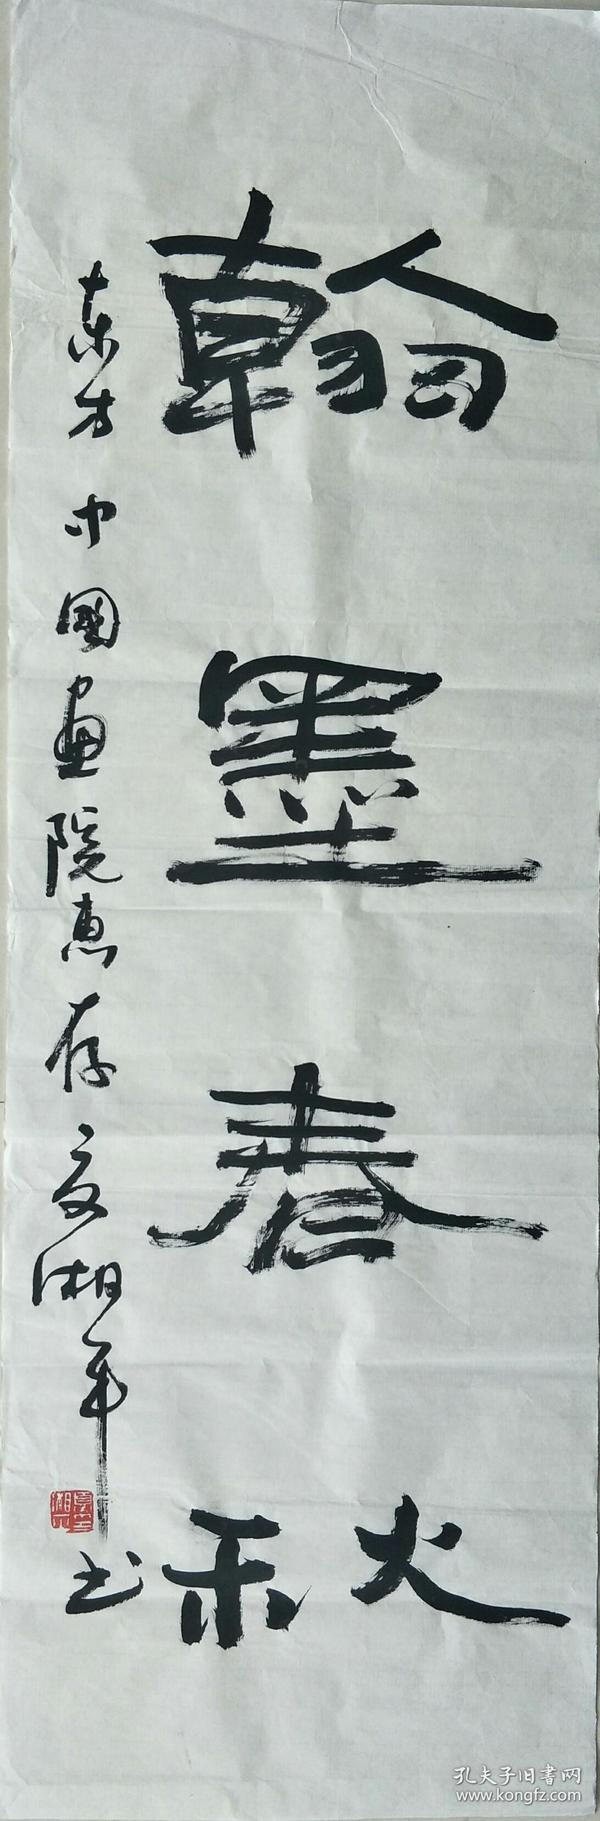 翰墨春秋
東方中國画院惠存夏湘平书
孔夫子旧書网
www.kongfz.com